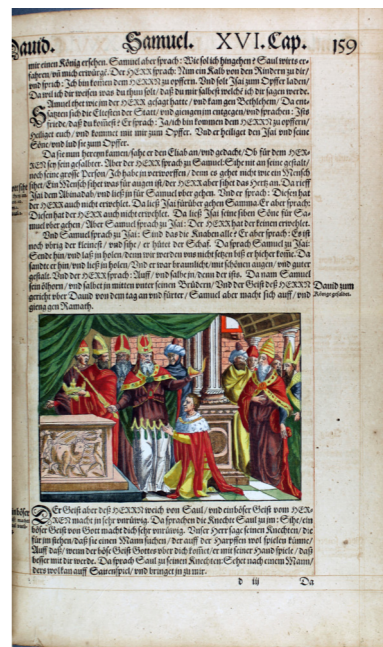 Dauid. Samuel. XVI. Cap. 159
mir einen König ersehen. Samuel aber sprach: Wie sol ich hingehen? Saul wirts er-
fahren/ vñ mich erwürgē. Der HERR sprach: Nim ein Kalb von den Rindern zu dir/
vnd sprich: Ich bin komen dem HERRN zu opffern. Vnd solt Isai zum Opffer laden/
Da wil ich dir weisen was du thun solt/ daß du mir salbest welchē ich dir sagen werde.
SAmuel thet wie jm der HERR gesagt hatte/ vnd kam gen Bethlehem/ Da ent-
satzten sich die Eltesten der Statt/ vnd giengen im entgegen/ vnd sprachen: Ists
friede/ daß du komest? Er sprach: Ja/ ich bin kommen dem HERRN zu opffern/
Heiliget euch/ vnd kommet mit mir zum Opffer. Vnd er heiliget den Isai vnd seine
Söne/ vnd lud sie zum Opffer.
Da sie nun herein kamen/ sahe er den Eliab an/ vnd gedacht/ Ob für dem HER-
REN sey sein gesalbeter. Aber der HERR sprach zu Samuel: Sihe nit an seine gestalt/
noch seine grosse Person/ Ich habe jn verworffen/ denn es gehet nicht wie ein Mensch
sihet/ Ein Mensch sihet was für augen ist/ der HERR aber sihet das Hertz an. Da rieff
Isai dem Abinadab/ vnd ließ jn für Samuel vber gehen. Vnd er sprach: Diesen hat
der HERR auch nicht erwehlet. Da ließ Isai fürüber gehen Samma. Er aber sprach:
Diesen hat der HERR auch nicht erwehlet. Da ließ Isai seine siben Söne für Sa-
muel vber gehen/ Aber Samuel sprach zu Isai: Der HERR hat der keinen erwehlet.
Vnd Samuel sprach zu Isai: Sind das die Knaben alle? Er aber sprach: Es ist
noch vbrig der kleinest/ vnd sihe/ er hütet der Schaf. Da sprach Samuel zu Isai:
Sende hin/ vnd laß jn holen/ denn wir werden vns nicht setzen biß er hieher kome. Da
sandte er hin/ vnd ließ jn holen/ Vnd er war braunlicht/ mit schönen augen/ vnd guter
gestalt. Vnd der HERR sprach: Auff/ vnd salbe jn/ denn der ists. Da nam Samuel
sein ölhorn/ vnd salbet jn mitten vnter seinen Brüdern/ Vnd der Geist deß HERRN
gericht vber Dauid von dem tag an vnd fürter/ Samuel aber macht sich auff/ vnd
gieng gen Ramath.
Dauid zum
Könige gesalbet.
DEr Geist aber deß HERRN weich von Saul/ vnd ein böser Geist vom HER-
REN macht jn sehr vnrüwig. Da sprachen die Knechte Saul zu jm: Sihe/ ein
böser Geist von Gott macht dich sehr vnrüwig. Vnser Herr sage seinen Knechten/ die
für jm stehen/ daß sie einen Mann suchen/ der auff der Harpffen wol spielen künne/
Auff daß/ wenn der böse Geist Gottes vber dich komet/ er mit seiner Hand spiele/ daß
besser mit dir werde. Da sprach Saul zu seinen Knechten: Sehet nach einem Mann/
ders wol kan auff Saitenspiel/ vnd bringet jn zu mir.
d iij Da